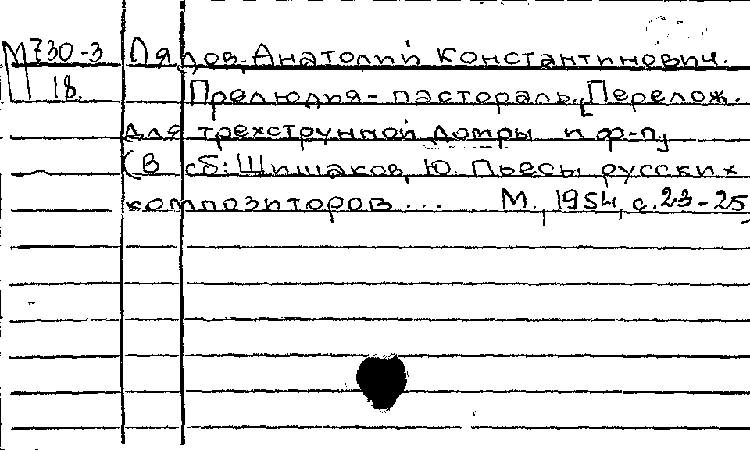 М730-3 Лядов Анатолий Константинович.
18. Прелюдия - пастораль. [Перелож.
для трехструнной домры и ф-п]
(В сб: Шишаков, Ю. Пьесы русских
композиторов... М., 1954, с. 23-25